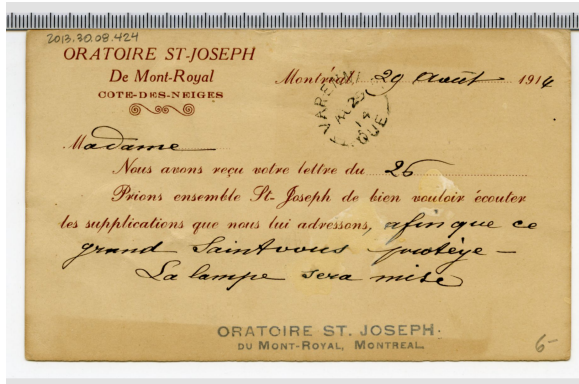 2013.30.08.424
ORATOIRE ST-JOSEPH
De Mont-Royal
COTE-DES-NEIGES
Montréal, 29 Août 1914
VARENNES
AU 29
14
QUE
Madame
Nous avons reçu votre lettre du 26
Prions ensemble St-Joseph de bien vouloir écouter
les supplications que nous lui adressons, afin que ce
grand Saint vous protège –
La lampe sera mise
ORATOIRE ST. JOSEPH.
DU MONT-ROYAL, MONTREAL.
6-